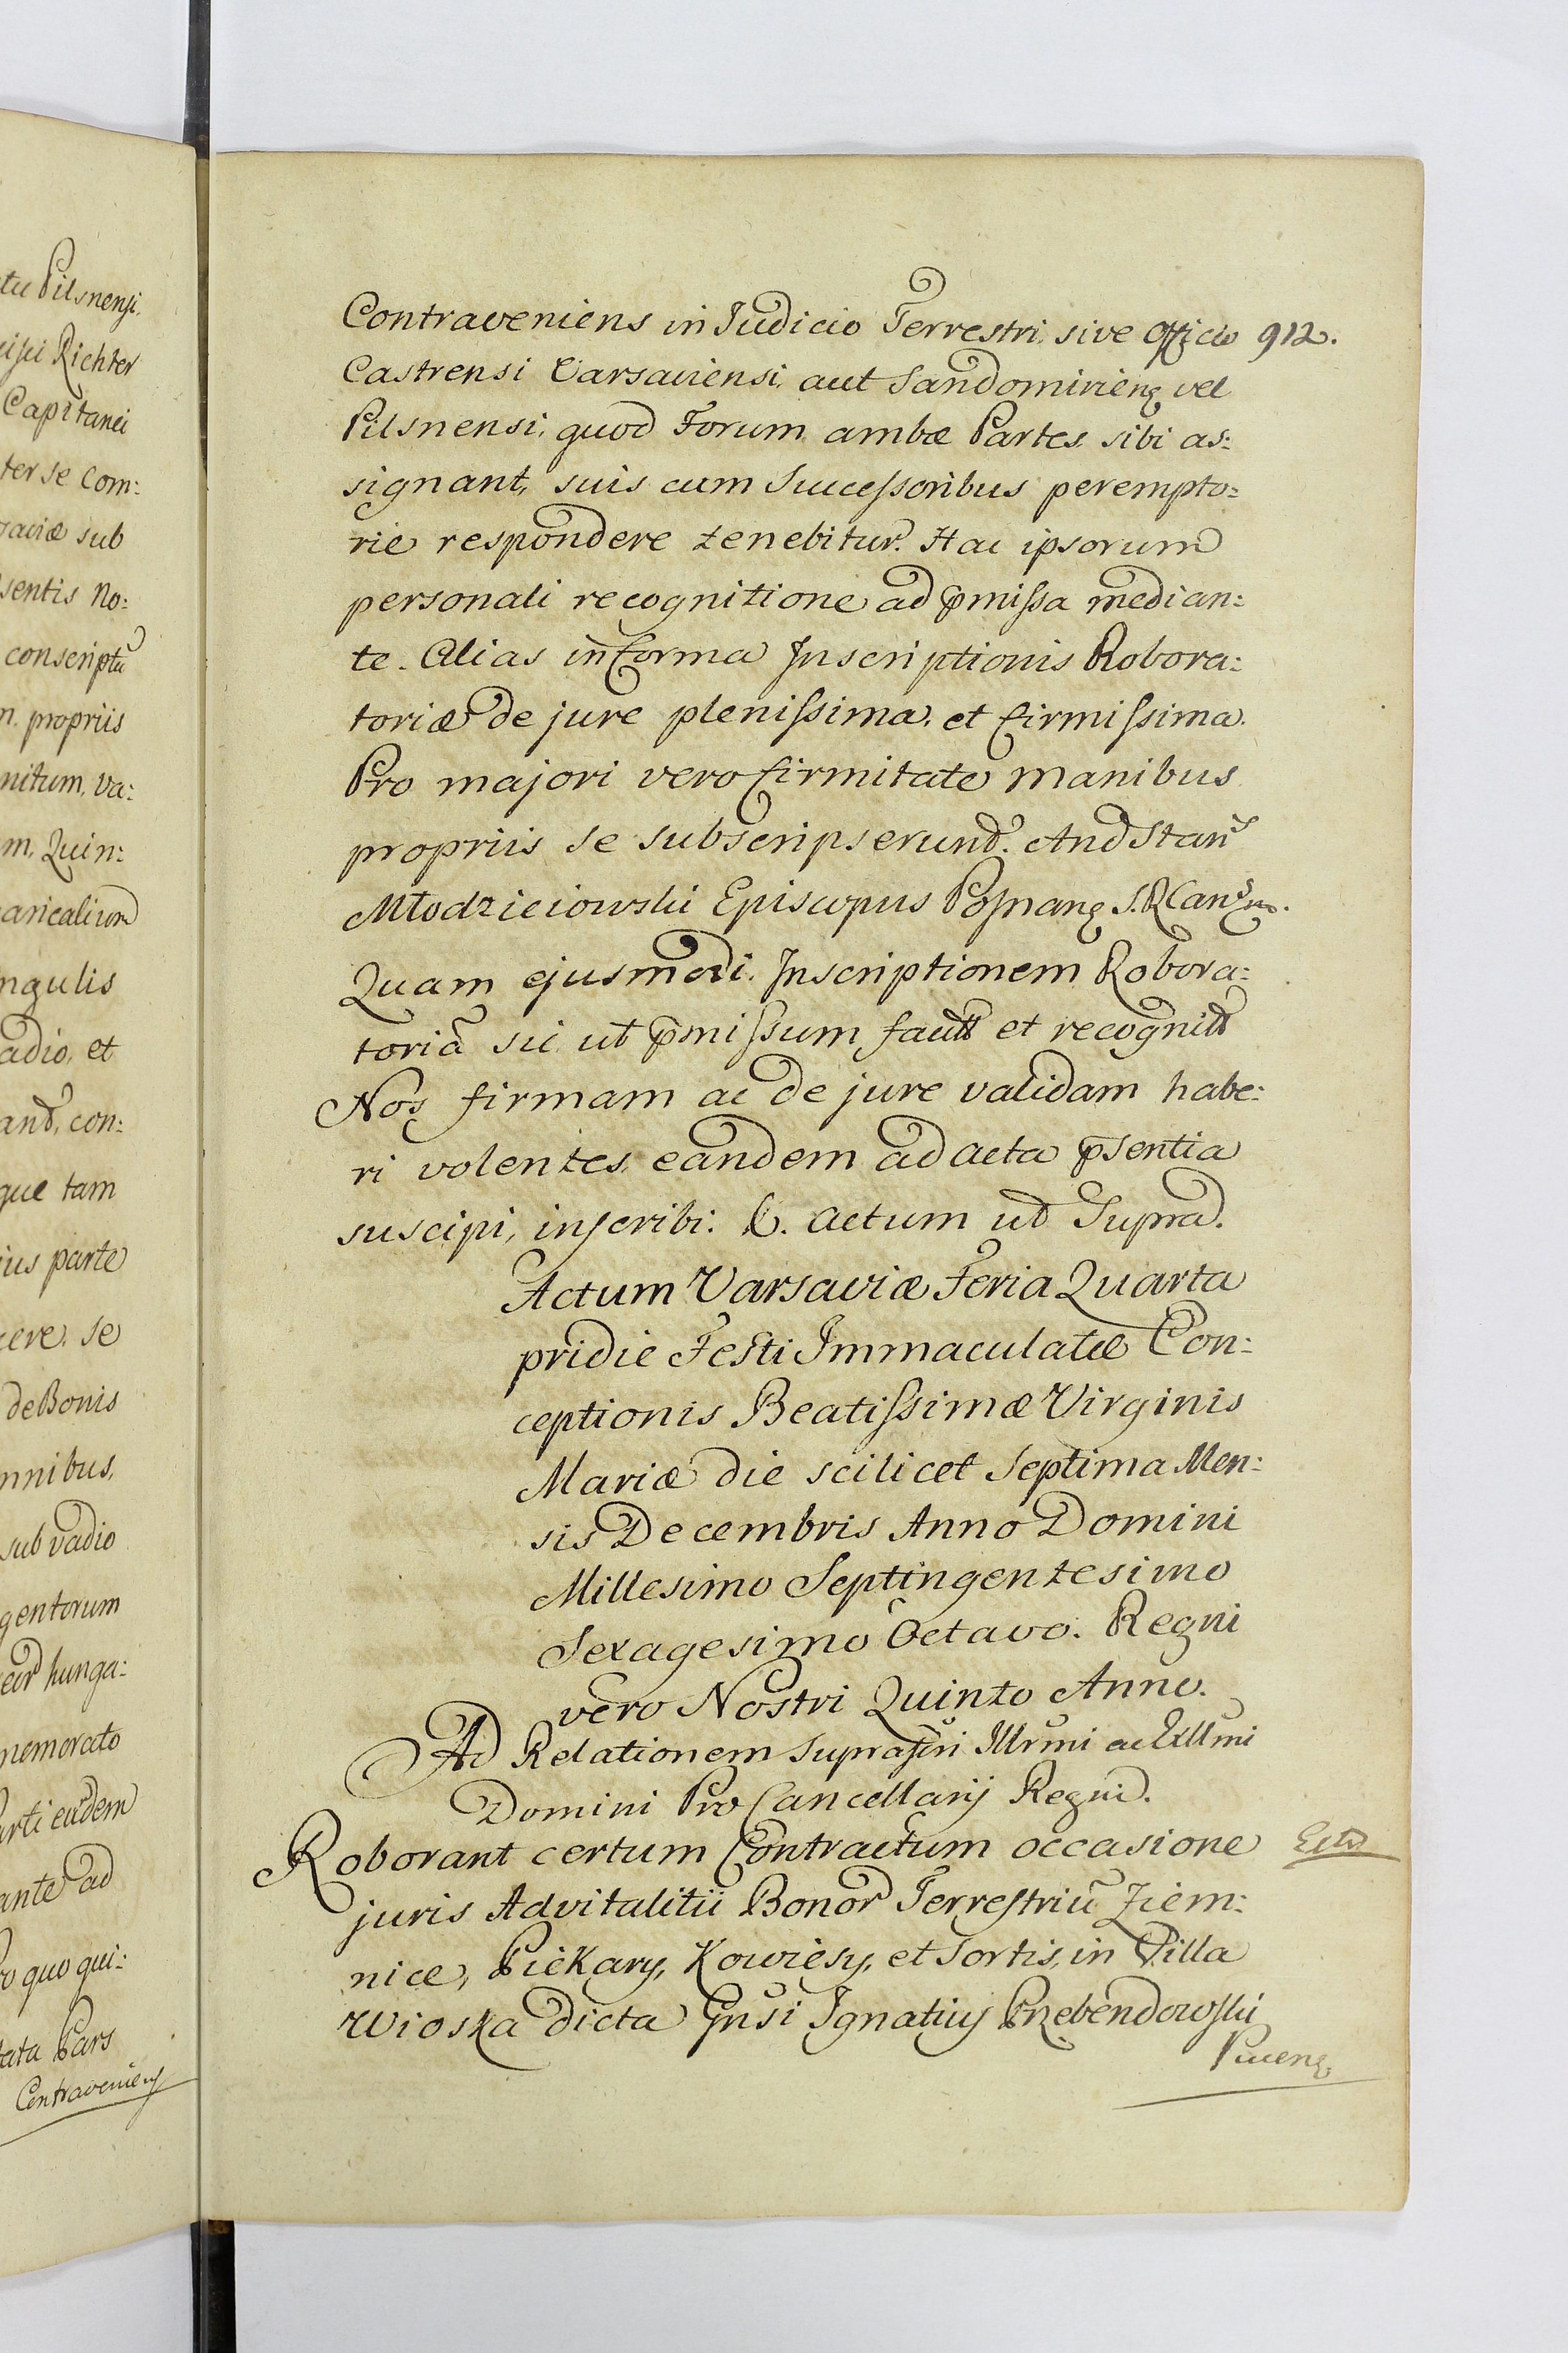 tu Pilsnensi.
Richter
Capitanei
ter se Com:
saviæ sub
sentis No:
conscriptũ
m. propriis
nitum, va:
m, Quin:
aricalium
ngulis
adio, et
and, con:
que tam
ius parte
cere. se
de Bonis
mnibus,
sub vadio
gentorum
hunga:
nemorato
arti eidem
ante ad
o quo qui:
tata Pars
Contraveniens
Contraveniens in Judicio Terrestri, sive Officio 912.
Castrensi Varsaviensi, aut Sandomirieng vel
Pilsnensi, quod Forum ambæ Partes sibi as:
signant, suis cum Successoribus perempto:
rie respondere tenebitur. Hac ipsorum
personali recognitione ad p̄missa median:
te. Alias in forma Inscriptionis Robora:
toriæ de jure plenissima, et firmissima.
Pro majori vero firmitate manibus
propriis se subscripserunt. And Stans
Młodzieiowski Episcopus Posnang S. R Cans
Quam ejusmodi Inscriptionem Robora:
toriã sic ut p̄missum factã et recognitã
Nos firmam ac de jure validam habe:
ri volentes, eandem ad acta p̄sentia
suscipi, inscribi: &. Actum ut Supra.
Actum Varsaviæ Feria Quarta
pridie Festi Immaculatæ Con:
ceptionis Beatissimæ Virginis
Mariæ die scilicet Septima Men:
sis Decembris Anno Domini
Millesimo Septingentesimo
Sexagesimo Octavo. Regni
vero Nostri Quinto Anno.
Ad Relationem suprascri Illrmi ac Exllmi
Domini Pro Cancellarij Regni.
Roborant certum Contractum occasione
juris Advitalitii Bonor Terrestriũ Ziem:
nice, Piekary, Kowiesy, et Sortis, in Villa
Wioska dicta Gnsi Ignatius Przebendowski
Puceng